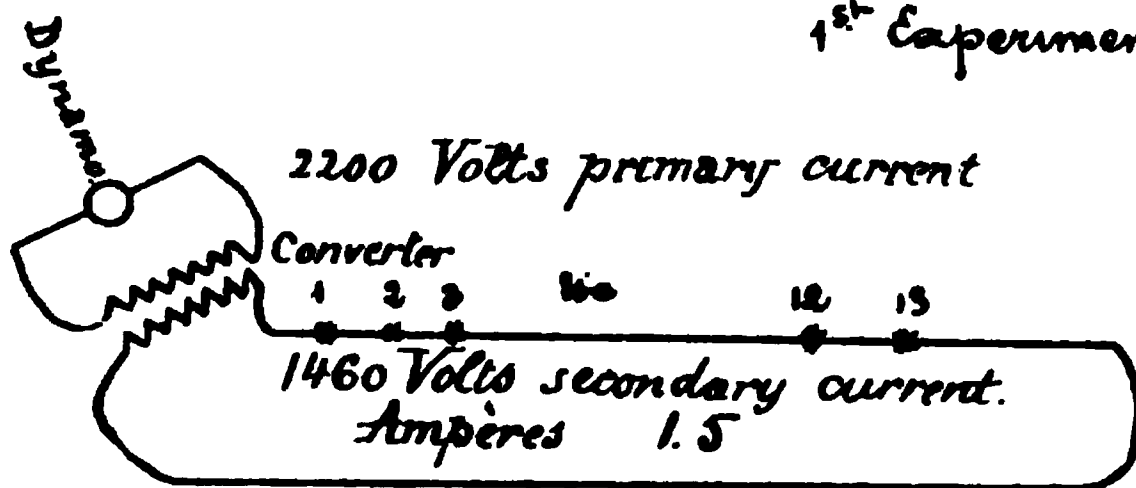 1st Experimen
Dynamo.
2200 Volts primary current
Converter
1 2 3 12 13
1460 Volts secondary current.
Ampères 1.5